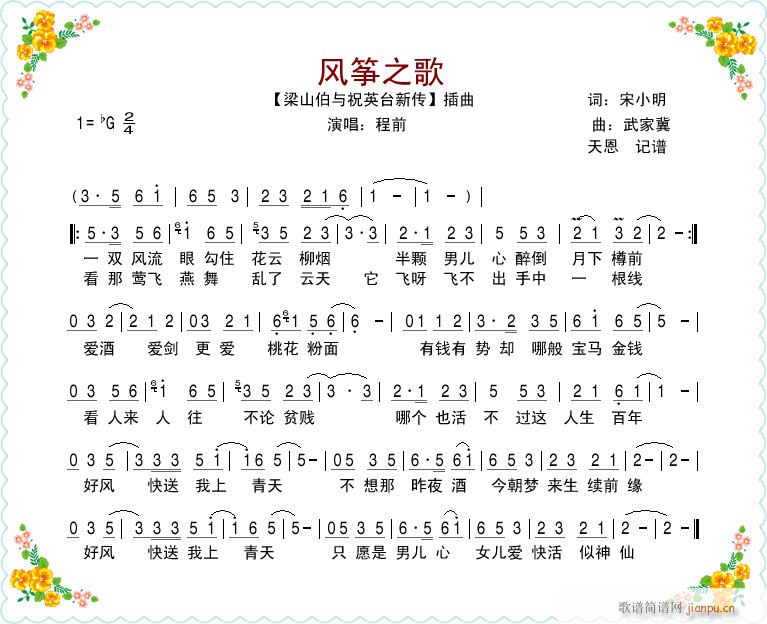 风筝之歌
【梁山伯与祝英台新传】插曲 词：宋小明
1=♭G 2/4 演唱：程前 曲：武家冀
天恩 记谱
(3·5 6 1 | 6 5 3 | 2 3 2 1 6 | 1 - | 1 - ) |
‖: 5·3 5 6 | 6 1 6 5 | 5 3 5 2 3 | 3·3 | 2·1 2 3 | 5 5 3 | 2 1 3 2 | 2 - :‖
一 双 风流 眼 勾住 花云 柳烟 半颗 男儿 心 醉倒 月下 樽前
看 那 莺飞 燕 舞 乱了 云天 它 飞呀 飞不 出 手中 一 根线
0 3 2 | 2 1 2 | 03 2 | 6 6 1 5 6 | 6 - | 01 1 2 | 3·2 3 5 | 6 1 6 5 | 5 - |
爱酒 爱剑 更 爱 桃花 粉面 有钱有 势 却 哪般 宝马 金钱
0 3 5 6 | 6 1 6 5 | 5 3 5 2 3 | 3·3 | 2·1 2 3 | 5 5 3 | 2 3 6 1 | 2 - |
看 人来 人 往 不论 贫贱 哪个 也活 不 过这 人生 百年
0 3 5 | 3 3 3 3 | 5 1 | 1 6 5 | 5 - | 0 5 3 5 | 6·5 6 1 | 6 5 6 3 | 2 3 2 1 | 1 - |
好风 快送 我上 青天 不 想那 昨夜 酒 今朝梦 来生 续前 缘
0 3 5 | 3 3 3 3 | 5 1 | 1 6 5 | 5 - | 0535 3 5 | 6·5 6 1 | 6 5 6 3 | 0 3 2 3 1 | 2 - | 2 - ‖
好风 快送 我上 青天 只 愿是 男儿 心 女儿爱 快活 似神 仙
歌谱简谱网
jianpu.cn